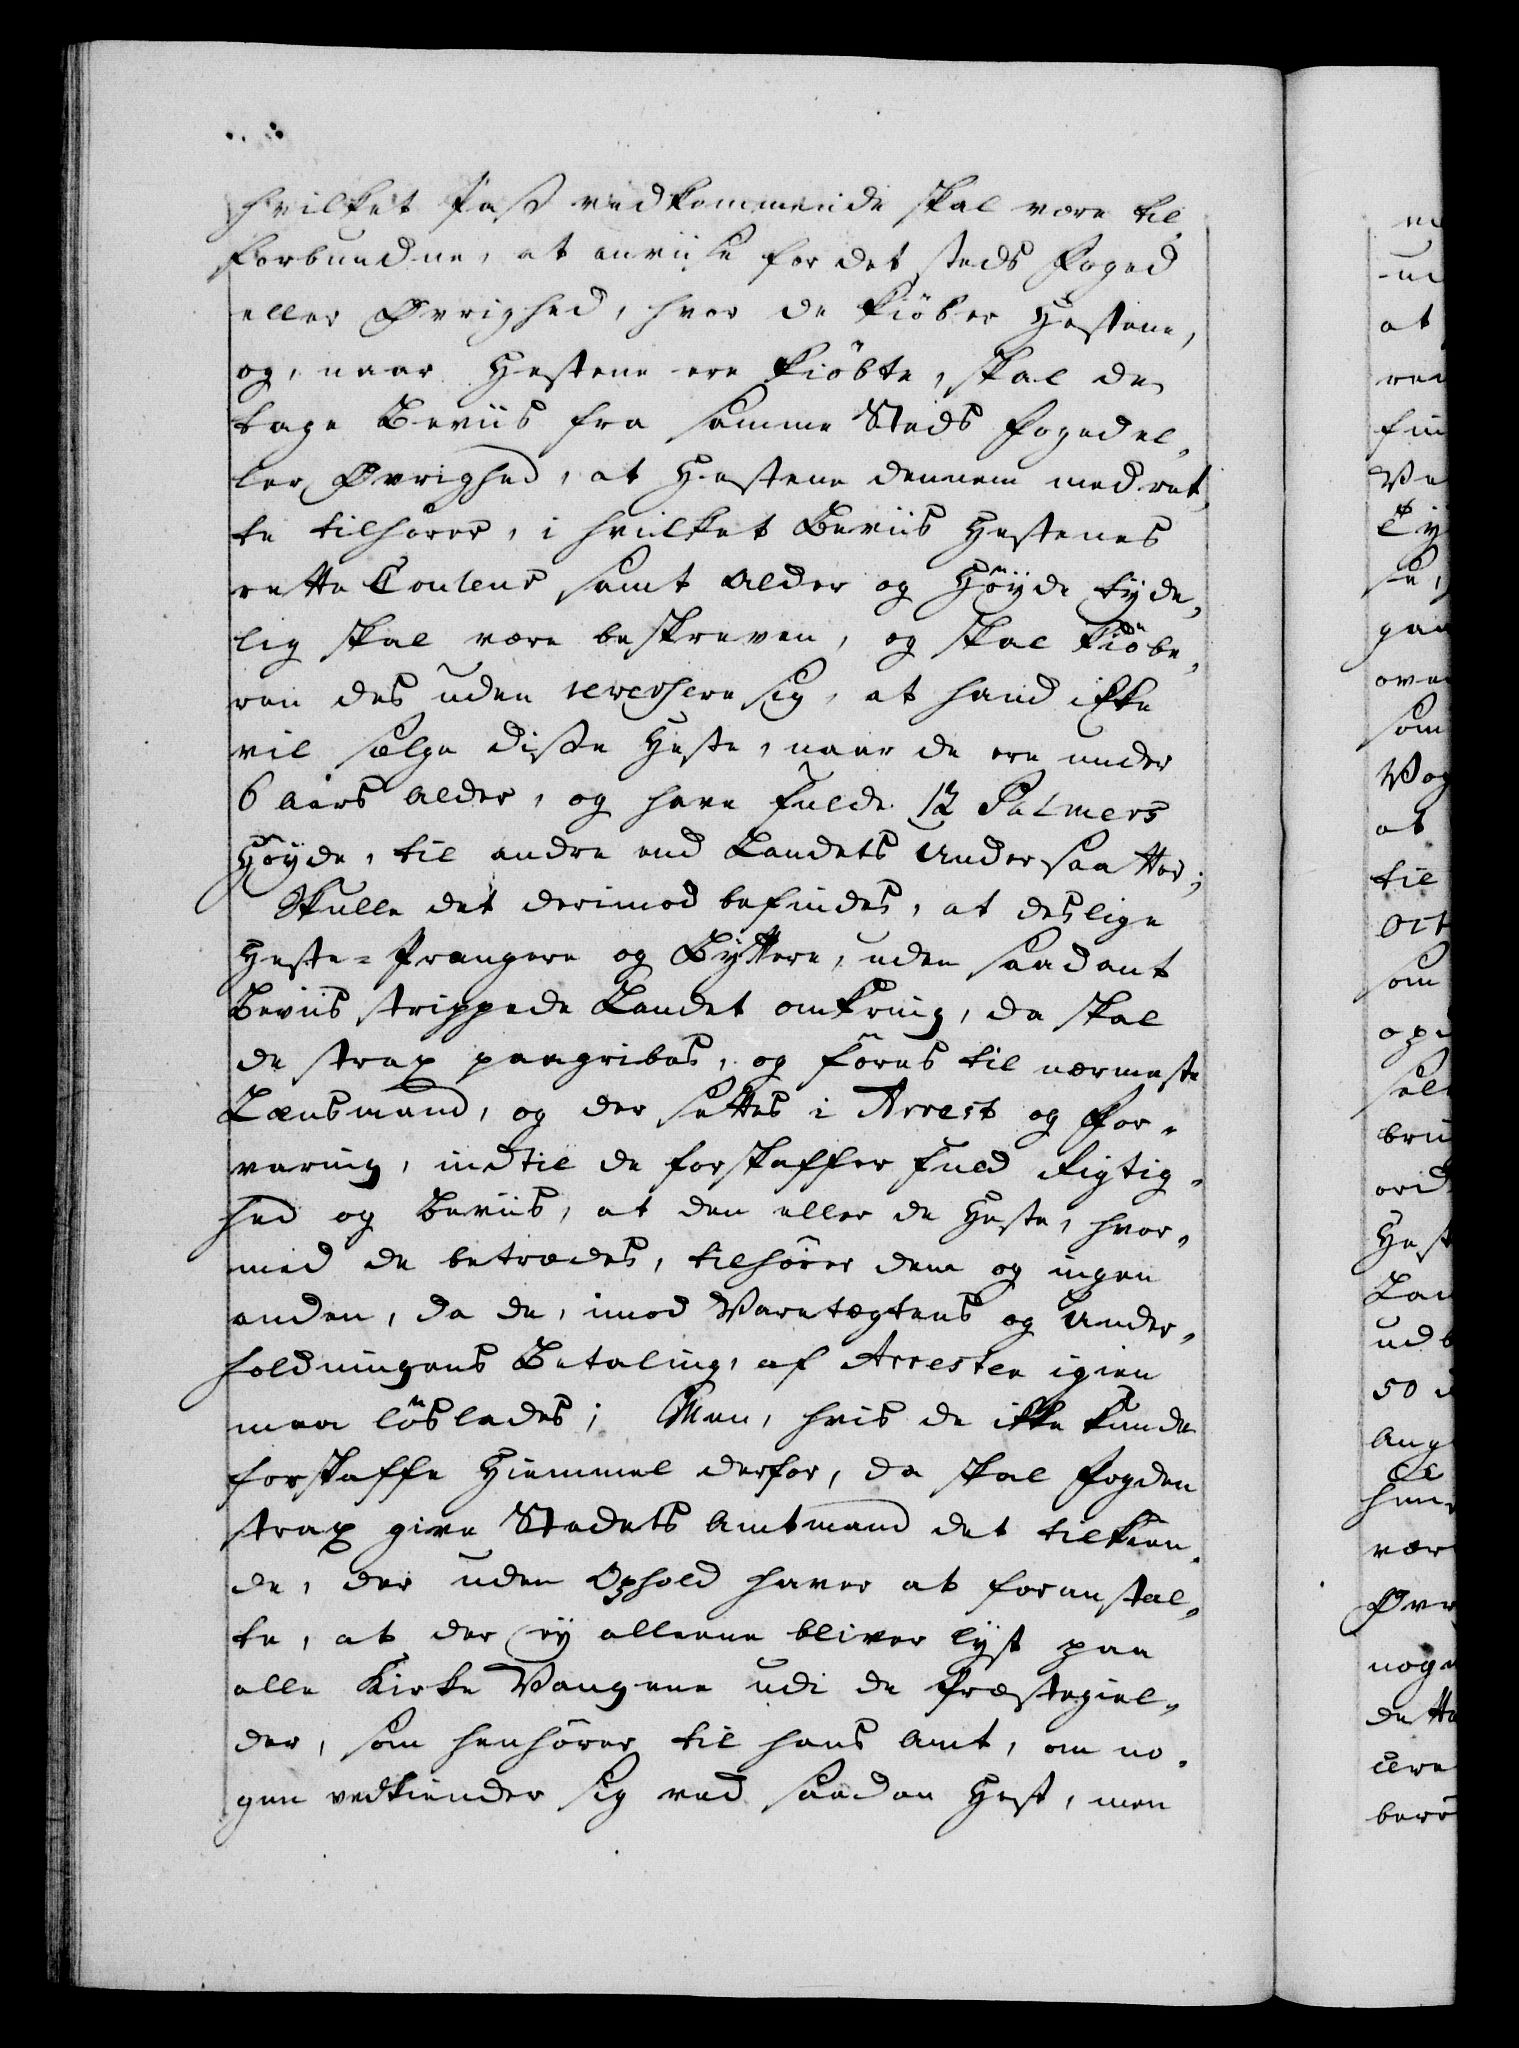 hvilket Pass vedkommende skal være til
forbundne, at anviise for det steds Foged
eller Øvrighed, hvor de kiöber Hestene,
og, naar Hestene ere kiöbte, skal de
tage Beviis fra samme Steds Foged el¬
ler Øvrighed, at Hestene dennem med ret¬
te tilhører, i hvilket Beviis Hestenes
rette Couleur samt Alder og Höyde tyde¬
lig skal være beskreven, og skal Kiöbe¬
ren des uden reversere sig, at hand ikke
vil sælge disse Heste, naar de ere under
6 Aars Alder, og have fulde 12 Palmers
Höyde, til andre end Landets Undersaatter;
Skulle det derimod befindes, at deslige
Heste-Prangere og Byttere, uden saadant
Beviis strippede Landet omkring, da skal
de strax paagribes, og föres til nærmeste
Lænsmand, og der settes i Arrest og For¬
varing, indtil de forskaffer fuld Rigtig¬
hed og Beviis, at den eller de Heste, hvor¬
med de betrædes, tilhører dem og ingen
anden, da de, imod Varetægtens og Under¬
holdningens Betaling, af Arresten igien
maa löslades; Men, hvis de ikke kunde
forskaffe Hiemmel derfor, da skal Fogden
strax give Stedets Amtmand det tilkien¬
de, der uden Ophold haver at foranstal¬
te, at der ey alleene bliver lyst paa
alle Kirke Vangene udi de Præstegiel¬
der, som henhører til hans Amt, om no¬
gen vedkiender sig ved saadan Hest, men